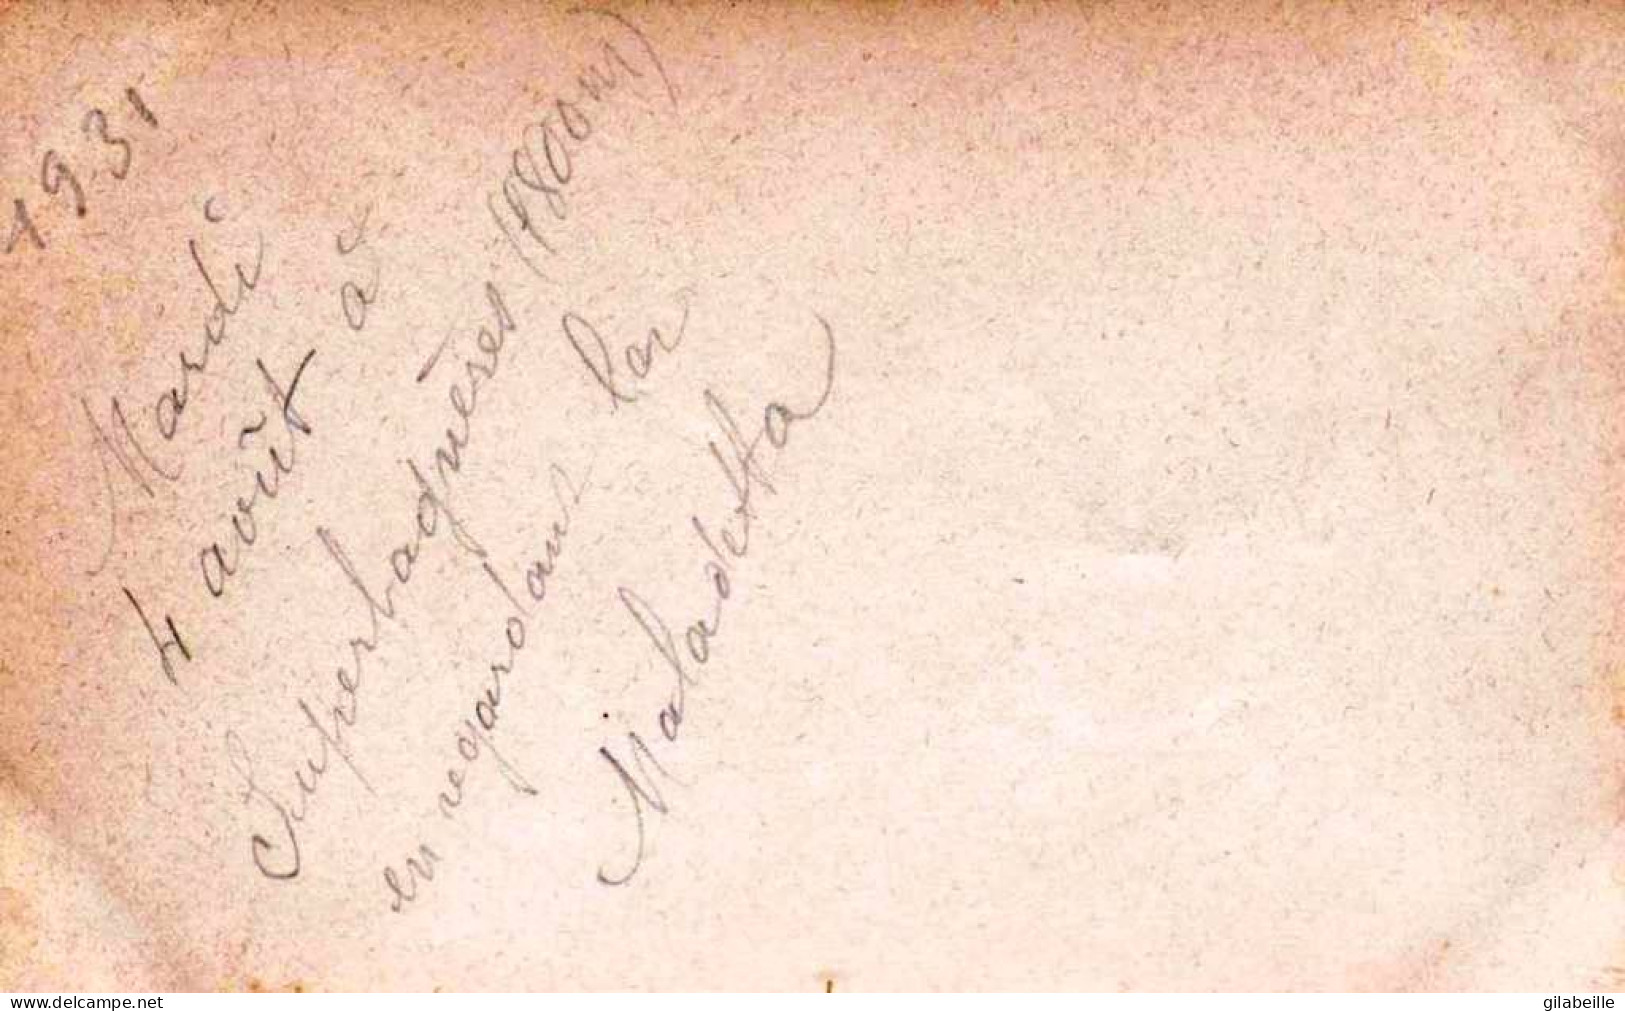 1931
Mardi
4 août à
Superbagnères (1800m)
en regardant la
Maladetta
www.delcampe.net
gilabeille